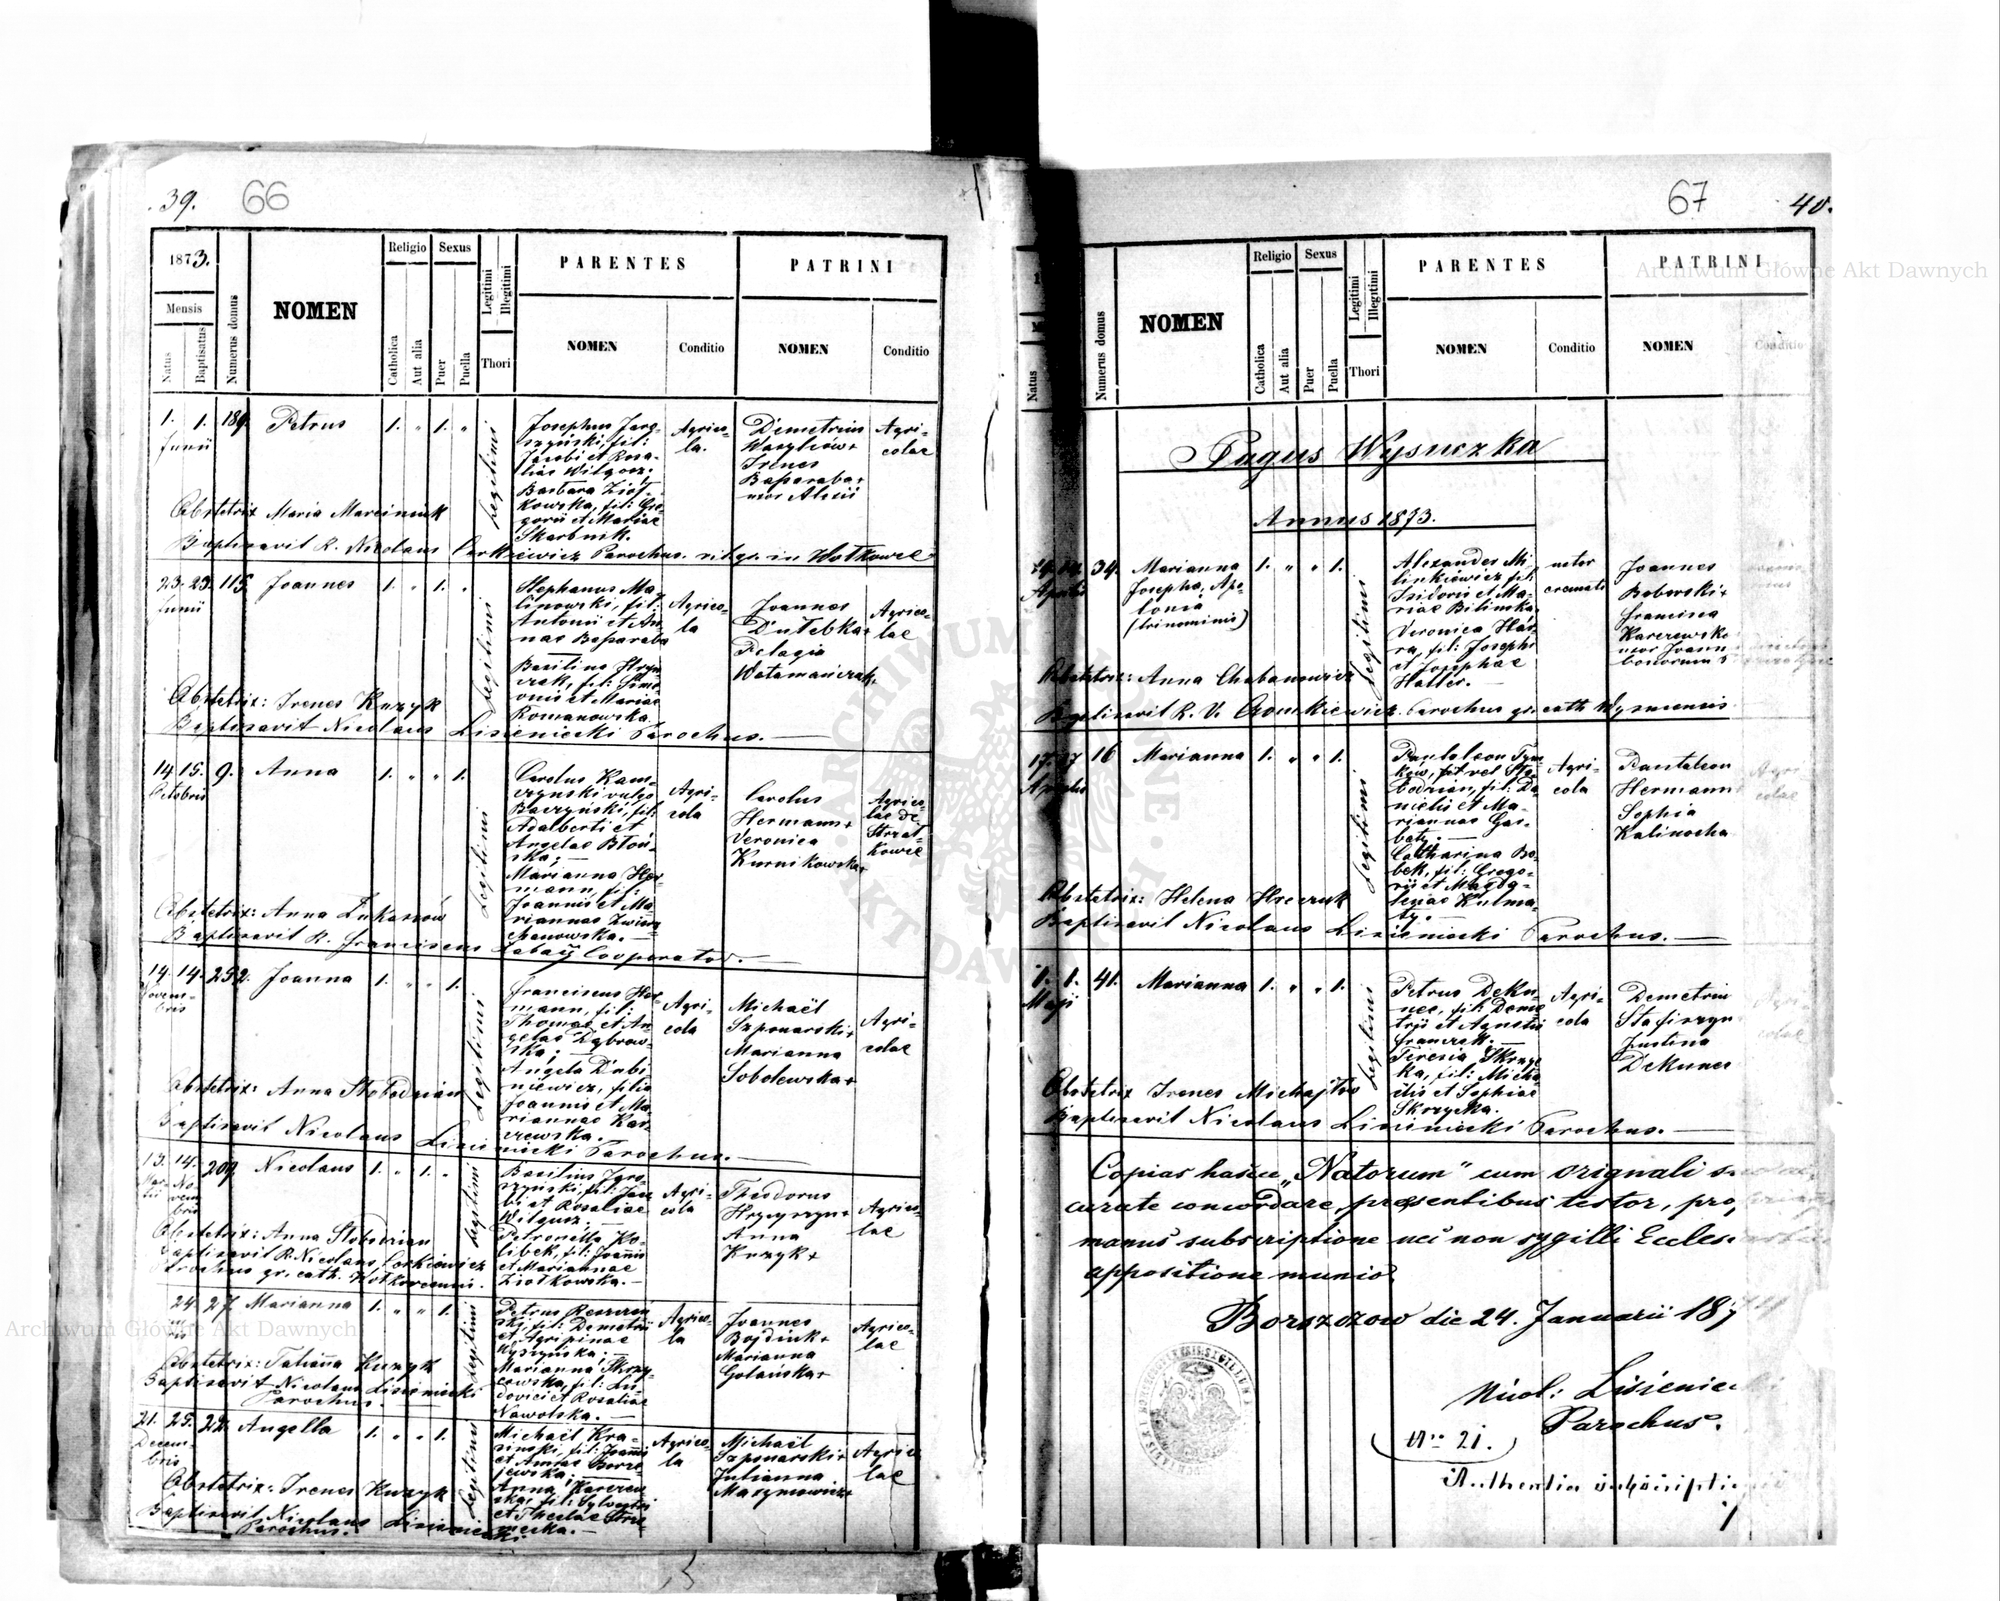 39. 66
1873.
Mensis
Natus
Baptisatus
Numerus domus
NOMEN
Religio
Catholica
Aut alia
Sexus
Puer
Puella
Legitimi
Illegitimi
Thori
PARENTES
NOMEN
Conditio
PATRINI
NOMEN
Conditio
1. 1. 189. Petrus 1. " 1. "
Junii
Legitimi
Josephus Jaro-
szyński, fil:
Jacobi et Rosa-
liae Wilgosz.
Barbara Ziół-
kowska, fil: Gre-
gorii et Mariae
Skarbnik.
Agrico-
la.
Demetrius
Wasylców +
Irenes
Baparaba +
uxor Alexii
Agri-
colae
Obstetrix Maria Marciniuk
Baptisavit R. Nicolaus Corkiewicz Parochus
23. 23. 115. Joannes 1. " 1. "
Junii
Legitimi
Stephanus Ma-
linowski, fil:
Antonii et An-
nae Baparaba
Basilina Hryn-
czak, fil: Sime-
onis et Mariae
Romanowska.
Agrico-
la
Joannes
Dutebka +
Pelagia
Watamańczuk
Agrico-
lae
Obstetrix: Irenes Kuzyk
Baptisavit Nicolaus Lisieniecki Parochus.
14. 15. 9. Anna 1. " " 1.
Octobris
Legitimi
Carolus Kam-
czynski vulgo
Baczyński, fil:
Adalberti et
Angelae Błoń-
ska;
Marianna Her-
mann, fil:
Joannis et Ma-
riannae
Agri-
cola
Carolus
Hermann +
Veronica
Kurnikowska +
Agrico-
lae de
Strzał-
kowce
Obstetrix: Anna Łukasiów
Baptisavit R. Franciscus Łabaý Cooperator.
14. 14. 252. Joanna 1. " " 1.
Novem-
bris
Legitimi
Franciscus Her-
mann, fil:
Thomae et An-
gelae Dąbrow-
ska;
Angela Dubi-
niewicz, filia
Joannis et Ma-
riannae Kar-
czewska.
Agri-
cola
Michaël
Szponarski +
Marianna
Sobolewska +
Agri-
colae
Obstetrix: Anna Słobodzian
Baptisavit Nicolaus Lisieniecki Parochus.
13. 14. 209. Nicolaus 1. " 1. "
Novem
bris
Legitimi
Basilius Jaro-
szyński, fil: Jaco-
bi et Rosaliae
Wilgosz.
Petronella Ko-
libek, fil: Joannis
et Mariannae
Ziołkowska.
Agri-
cola
Theodorus
Hrycyszyn +
Anna
Kuzyk +
Agrico-
lae
Obstetrix: Anna Słobodzian
Baptisavit R. Nicolaus Corkiewicz
Parochus gr. cath.
24. 27. Marianna 1. " " 1.
Legitimi
Petrus
fil: Demetrii
et Agripinae
Marianna
fil: Lu-
dovici et Rosaliae
Nawolska.
Agrico-
la
Joannes
Bojdiuk +
Marianna
Golańska +
Agrico-
lae
Obstetrix: Tatianna Kuzyk
Baptisavit Nicolaus Lisieniecki
Parochus.
21. 25. 22. Angella 1. " " 1.
Decem-
bris
Legitimi
Michaël Kra-
sinski, fil: Joannis
et Annae Borze-
jewska;
Anna Karczew-
ska, fil: Sylvestri
et Theclae
Agrico-
la
Michaël
Szponarski +
Julianna
Maszniewicz +
Agrico-
lae
Obstetrix: Irenes Kuzyk
Baptisavit Nicolaus Lisieniecki
Parochus.
67 40.
Natus
Numerus domus
NOMEN
Religio
Catholica
Aut alia
Sexus
Puer
Puella
Legitimi
Illegitimi
Thori
PARENTES
NOMEN
Conditio
PATRINI
NOMEN
Conditio
Pagus Wysuczka
Annus 1873.
34. Marianna 1. " " 1.
Aprilis
Josepha, Apo-
lonia
(trinominis)
Legitimi
Alexander Mi-
linkiewicz fil:
Isidorii et Ma-
riae Bilinska.
Veronica Hás-
ra, fil: Josephi
et Josephae
Haller.
Joannes
Bobowski +
Francisca
Karczewska
uxor Joann
bonorum
Obstetrix: Anna Chabanowicz
Baptisavit R. V. Gromkiewicz. Parochus gr. cath.
17. 27 16 Marianna 1. " " 1.
Aprilis
Legitimi
Pantaleon Tym-
ków, fil vel Sło-
bodzian, fil: Da-
nielis et Ma-
riannae Gar-
baty.
Catharina Bo-
bek, fil: Grego-
rii et Magda-
lenae Kulma-
ty.
Agri-
cola
Pantaleon
Hermann
Sophia
Kalinocha
Agri
colae
Obstetrix: Helena Hreczuk
Baptisavit Nicolaus Lisieniecki Parochus.
1. 1. 41. Marianna 1. " " 1.
Maji
Legitimi
Petrus Deku-
nec, fil: Deme-
trii et Agnetis
Franczak.
Teresia Skrzyc-
ka, fil: Micha-
elis et Sophiae
Skrzycka.
Agri-
cola
Demetriu
Stafiszyn
Justina
Dekunec
Agri
colae
Obstetrix Irenes Michajlów
Baptisavit Nicolaus Lisieniecki Parochus.
Copias hasce „Natorum" cum orignali
curate concordare, presentibus testor, pro,
manus subscriptione nec non sygilli Eccles
appositione munio.
Borszczow die 24. Januarii 187
Nicol: Lisieniecki
Parochus.
Nro 21.
Archiwum Główne Akt Dawnych
Archiwum Główne Akt Dawnych
ARCHIWUM GŁÓWNE
AKT DAWNYCH